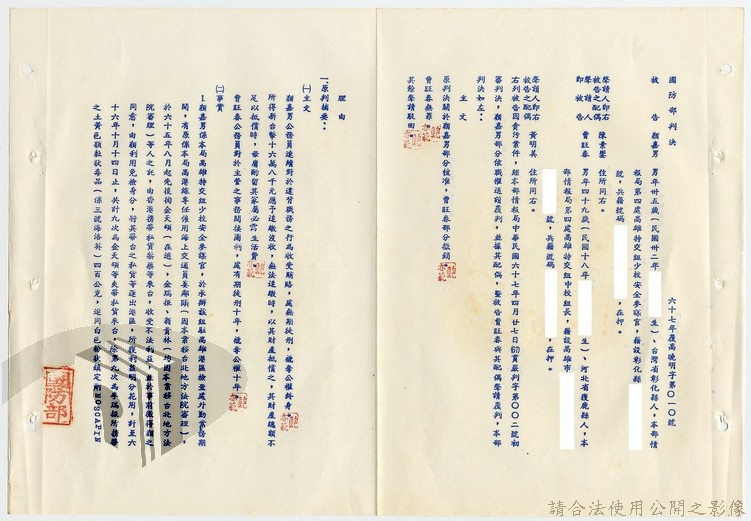 國防部判決
六十七年度高曉明字第〇一〇號
被告 顏嘉男 男年卅五歲(民國卅二年 生)、台灣省彰化縣人,本部情
報局第四處高雄特交組少校安全參謀官,籍設彰化縣
號,兵籍號碼 ,在押。
聲請人即右
被告之配偶 陳素鑾 住所同右。
聲請人
即被告 曾旺春 男年四十九歲(民國十八年 生)、河北省獲鹿縣人,本
部情報局第四處高雄特交組中校組長,籍設高雄市
號,兵籍號碼 ,在押。
聲請人即右
被告之配偶 黃明美 住所同右。
右列被告因貪污案件,經本部情報局中華民國六十七年四月廿七日(67)貫嚴判字第〇〇二號初
審判決,顏嘉男部分依職權送請覆判,並據其配偶,暨被告曾旺春與其配偶聲請覆判,本部
判決如左:
主文
原判決關於顏嘉男部分核准,曾旺春部分撤銷。
曾旺春無罪。
其餘聲請駁回。
理由
一、原判摘要:
(一)主文
顏嘉男公務員連續對於違背職務之行為收受賄賂,處無期徒刑,褫奪公權終身。
所得新台幣十六萬八千元應予追繳沒收,無法追繳時,以其財產抵償之,其財產總額不
足以抵償時,毋庸酌留其家屬必需生活費。
曾旺春公務員對於主管之事務間接圖利,處有期徒刑十年,褫奪公權十年。
(二)事實
1.顏嘉男係本局高雄特交組少校安全參謀官,於承辦該組駐高雄港區檢查處外勤業務期
間,有原係本局高港線專任僱用海上交通員姜鄰顯(因本業移台北地方法院審理),
於六十五年八月起先後拘金天碩(在逃),金瑪程、翁賓林(均因本業移台北地方法
院審理)等人之託,由香港攜帶私貨藥藥等來台,收受不法利益,並於事前徵得顏之
同意,由顏利用免檢身分,將其帶台之私貨等運出港區,所獲利益朋分花用,計至六
十六年十月十四日止,共計九次為金天碩等夾帶私貨來台除第九次為李瑞程所攜帶
之土黃色顆粒狀毒品(係三號海洛英)四百公克,連同白色粉狀鎮定劑NOSCAPIN
國防部
請合法使用公開之影像